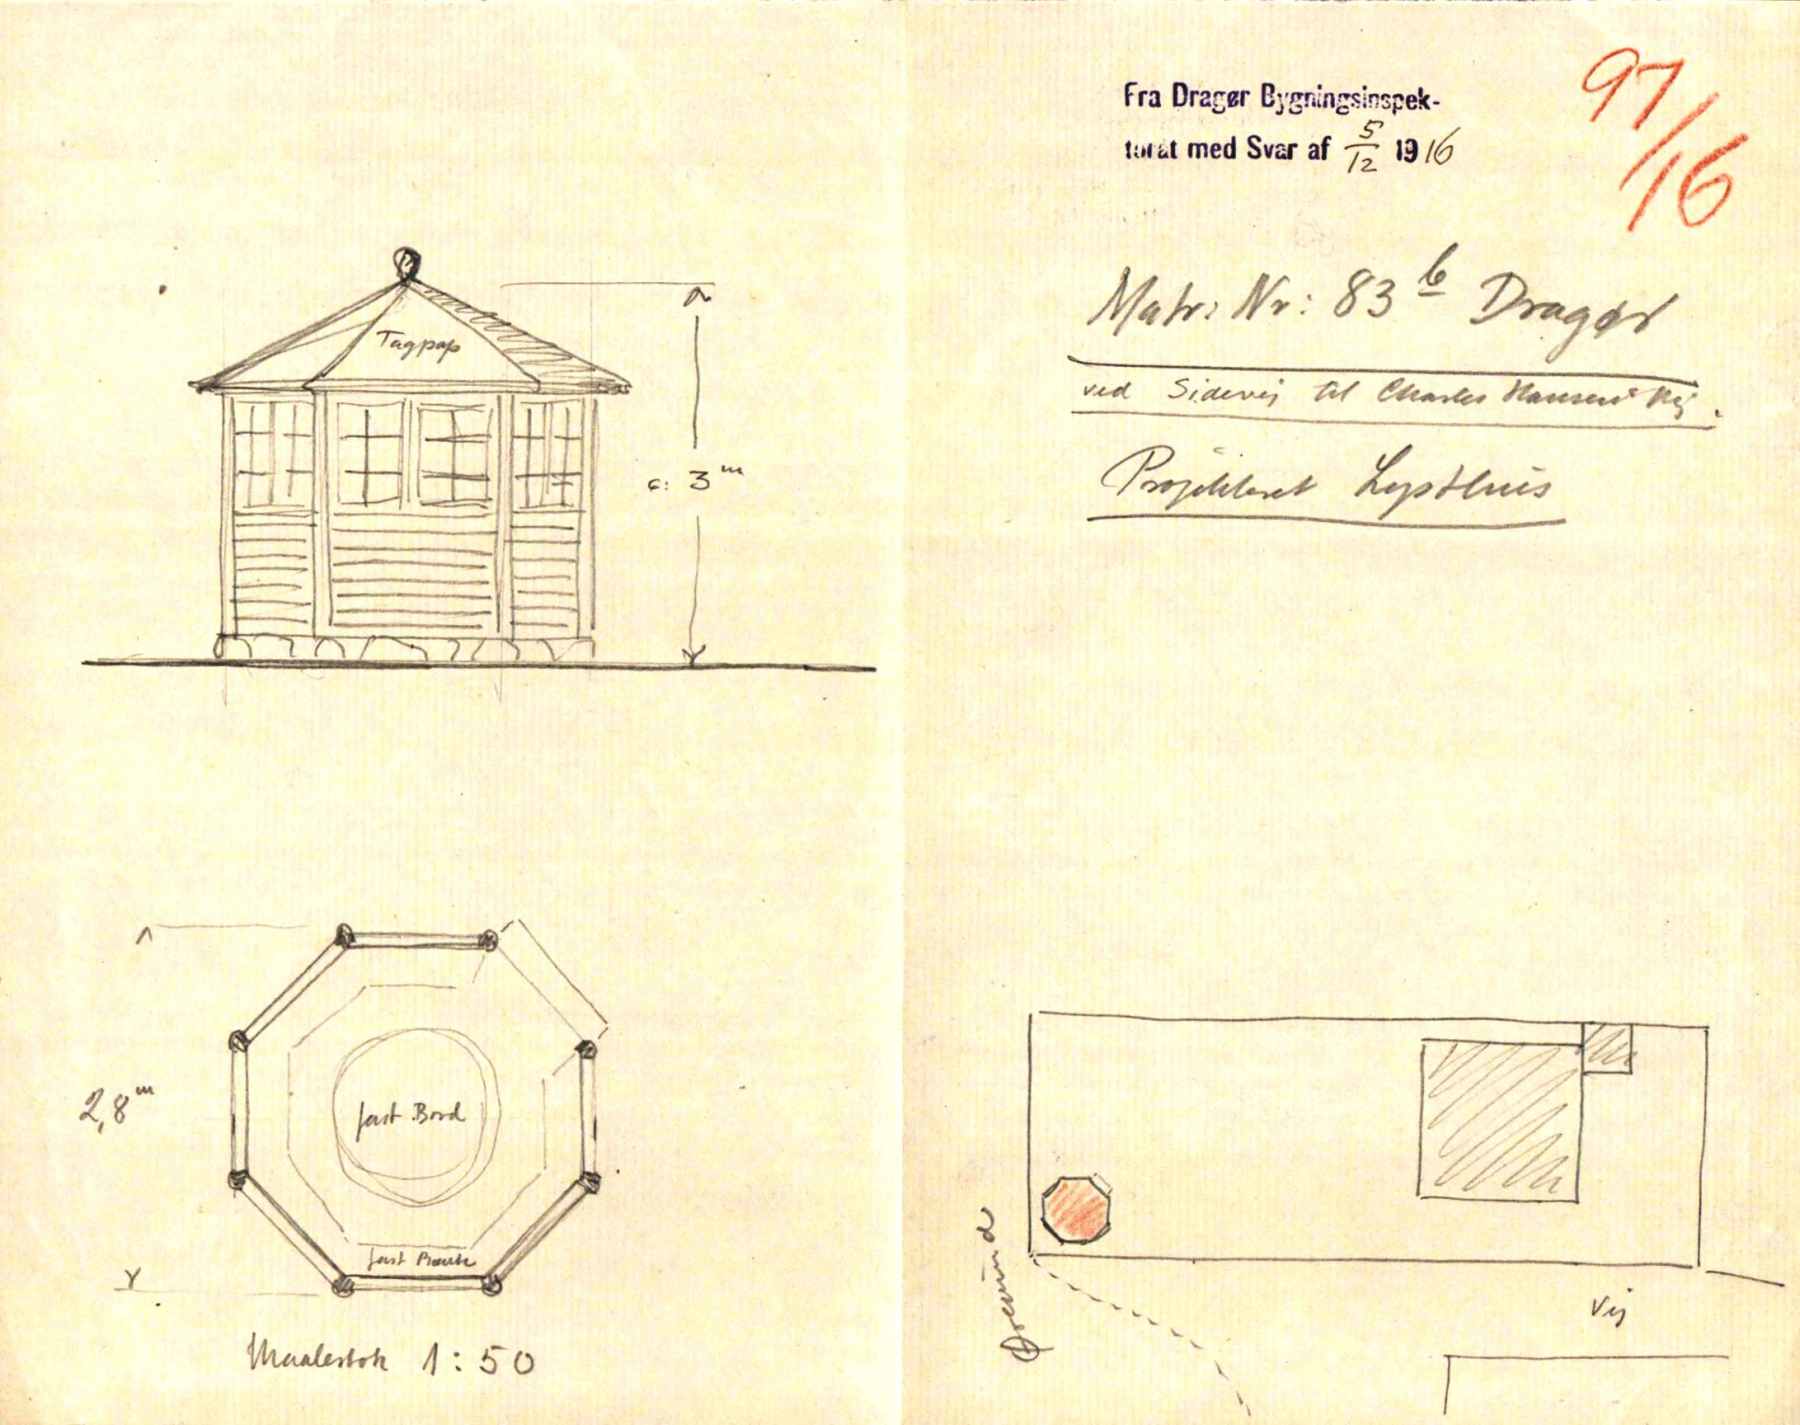 Fra Dragør Bygningsinspek-
torat med Svar af 5/12 1916
97/16
Matr: Nr: 83 b Dragør
ved Sidevej til Charles Hansens Vej.
Projekteret Lysthus
Tagpap
c: 3 m
2,8 m
fast Bord
fast Bænk
Maalestok 1:50
Øresund
Vej